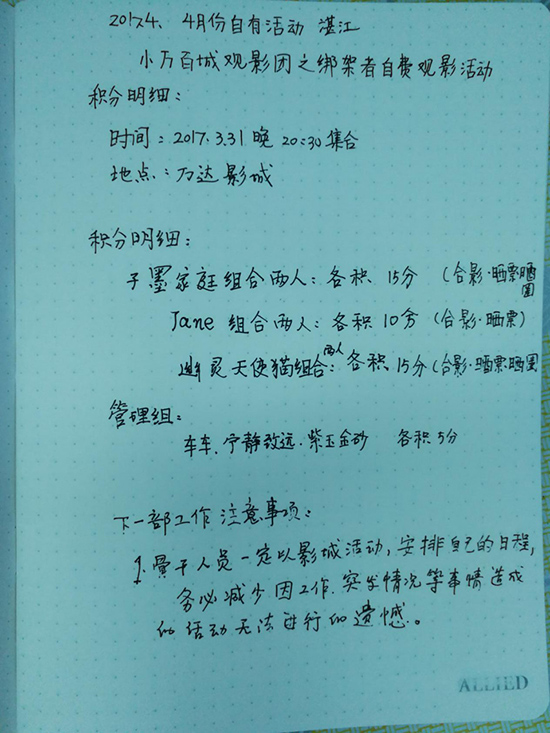 2017.4、4月份自有活动 湛江
小万百城观影团之绑架者自费观影活动
积分明细:
时间:2017.3.31晚 20:30集合
地点:万达影城
积分明细:
子墨家庭组合两人:各积 15分 (合影·晒票晒圈
Jane 组合两人:各积10分 (合影·晒票)
幽灵天使猫组合两人:各积 15分(合影·晒票晒圈
管理组:
车车.宁静致远.紫玉金砂 各积5分
下一部工作注意事项:
1.骨干人员一定以影城活动,安排自己的日程,
务必减少因工作.突发情况等事情造成
的活动无法进行的遗憾。
ALLIED